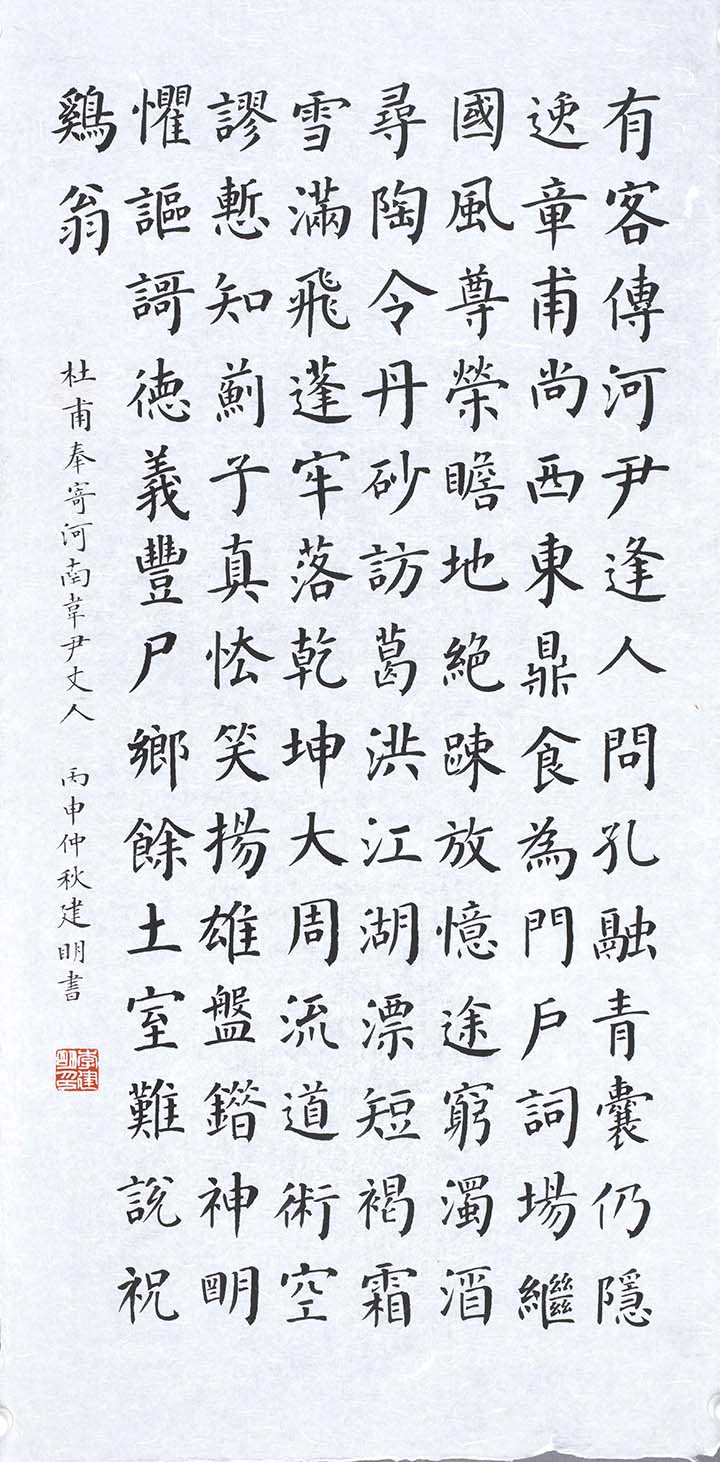 有客傳河尹逢人問孔融青囊仍隱
逸章甫尚西東鼎食為門戶詞場繼
國風尊榮瞻地絕踈放憶途窮濁酒
尋陶令丹砂訪葛洪江湖漂短褐霜
雪滿飛蓬牢落乾坤大周流道術空
謬慙知薊子真怯笑揚雄盤錯神明
懼謳謌徳義豐尸鄉餘土室難説祝
鷄翁
杜甫奉寄河南韋尹丈人 丙申仲秋建明書
李建明印